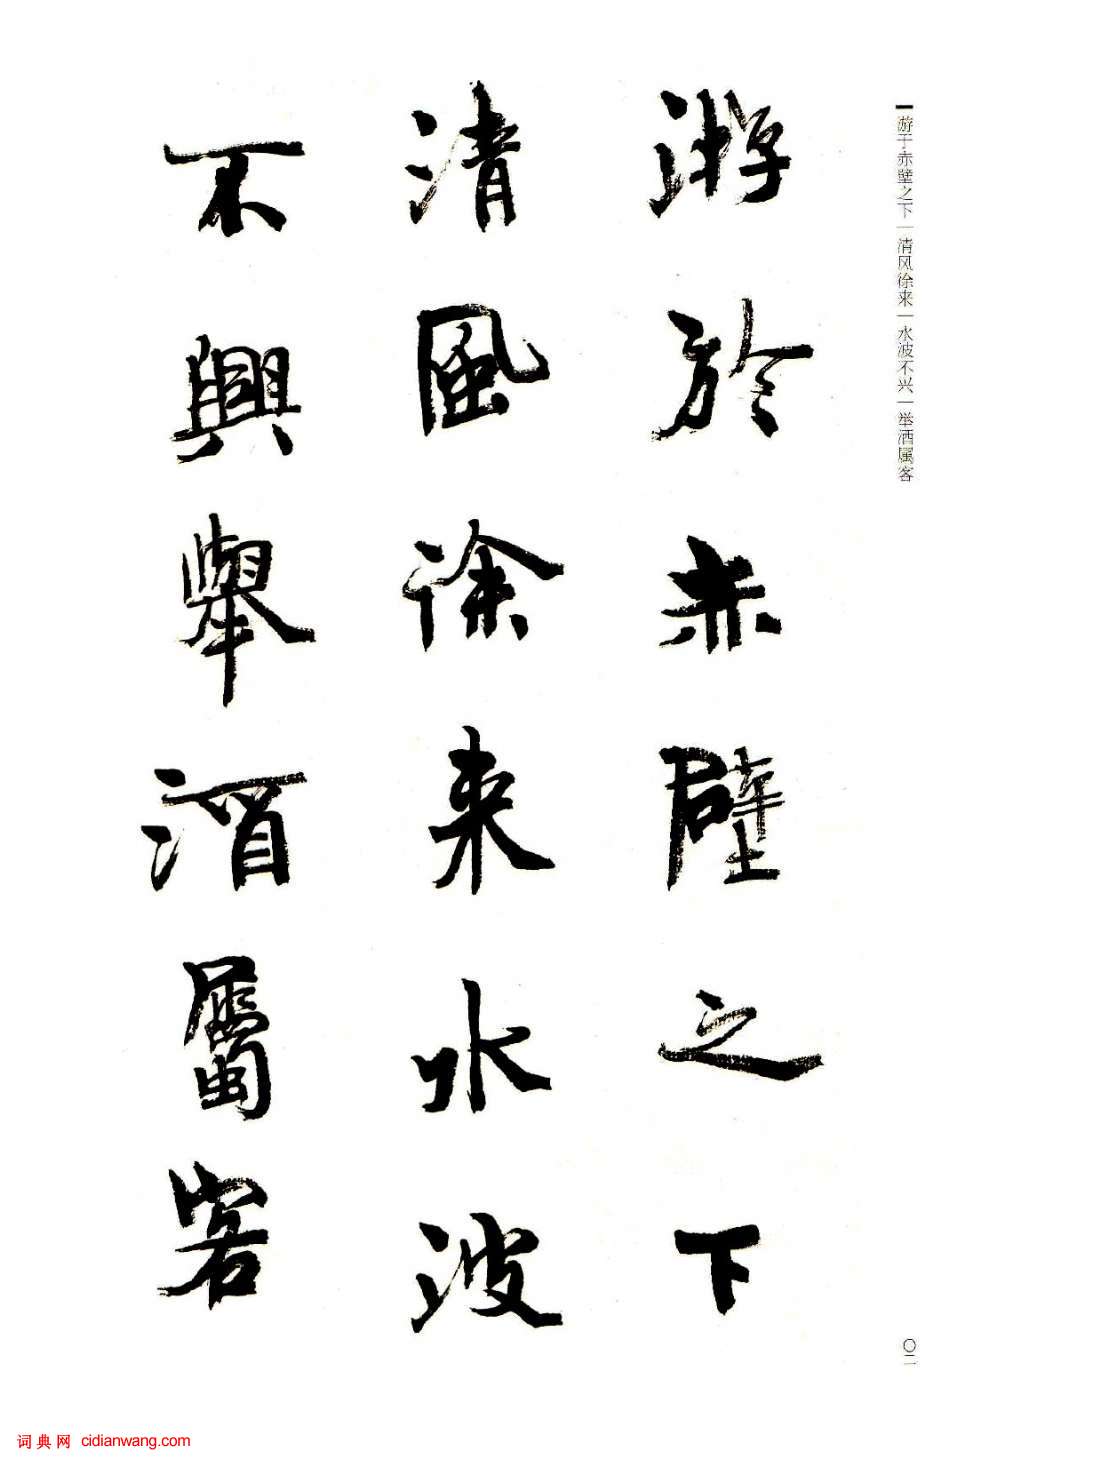 游于赤壁之下｜清风徐来｜水波不兴｜举酒属客
游於赤壁之下
清風徐来水波
不興舉酒屬客
〇二
词典网 cidianwang.com